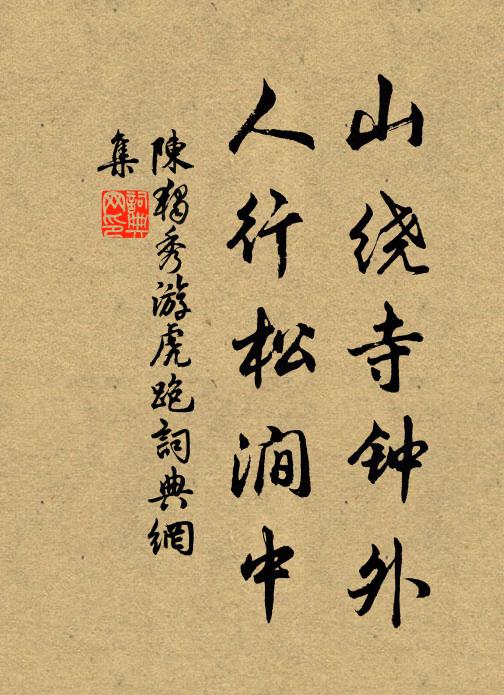 山绕寺钟外
人行松涧中
陳獨秀游虎跑詞典網
集
詞典
网印